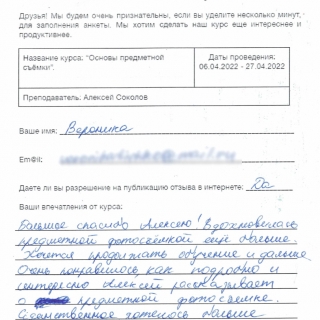 Друзья! Мы будем очень признательны, если вы уделите несколько минут,
для заполнения анкеты. Мы хотим сделать наш курс еще интереснее и
продуктивнее.
Название курса: "Основы предметной
съёмки".
Даты проведения:
06.04.2022 - 27.04.2022
Преподаватель: Алексей Соколов
Ваше имя: Вероника
Em@il:
Даете ли вы разрешение на публикацию отзыва в интернете: Да
Ваши впечатления от курса:
Большое спасибо Алексею! Вдохновилась
предметной фотосъёмкой ещё больше.
Хочется продолжать обучение и дальше
Очень понравилось, как подробно и
интересно Алексей рассказывает
о предметной фотосъёмке.
Единственное хотелось больше